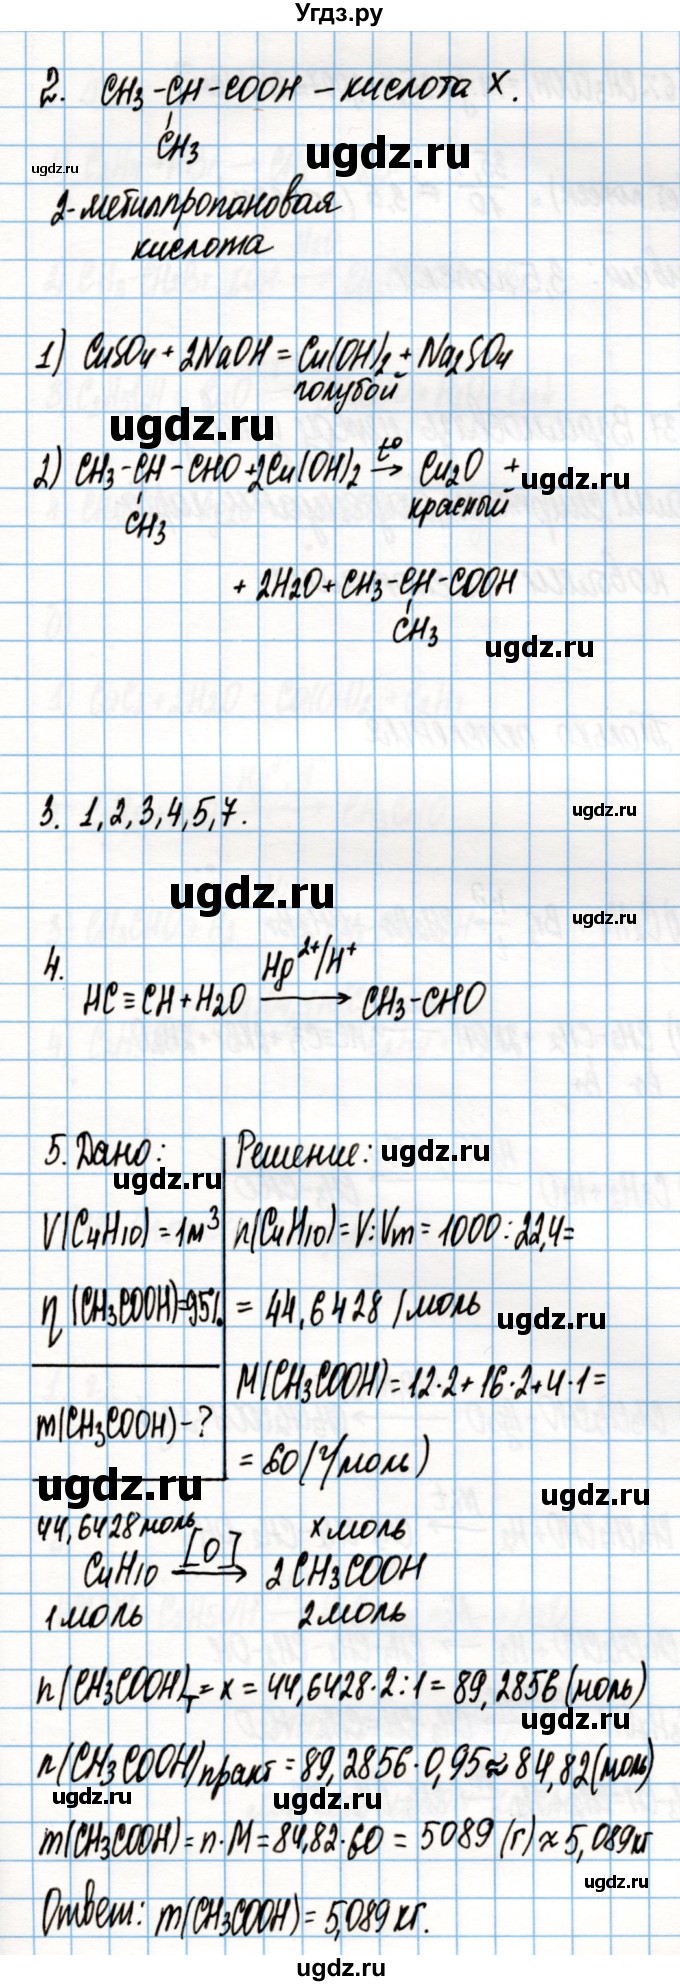 Угдз.ру
2. CH3-CH-COOH - кислота X.
CH3
ugdz.ru
ugdz.ru
2-метилпропановая
кислота
1) CuSO4 + 2NaOH = Cu(OH)2 + Na2SO4
голубой
ugdz.ru
2) CH3-CH-CHO + 2Cu(OH)2 t° → Cu2O +
ugdz.ru
красный
CH3
+ 2H2O + CH3-CH-COOH
CH3
ugdz.ru
3. 1, 2, 3, 4, 5, 7.
ugdz.ru
ugdz.ru
ugdz.ru
4.
Hg2+/H+
HC≡CH + H2O → CH3-CHO
5. Дано:
ugdz.ru
V(C4H10) = 1м³
η (CH3COOH)=95%
m(CH3COOH) - ?
ugdz.ru
Решение: ugdz.ru
n(C4H10) = V : Vm = 1000 : 22,4 =
= 44,6428 /моль
ugdz.ru
M(CH3COOH) = 12·2 + 16·2 + 4·1 =
= 60 (г/моль)
ugdz.ru
44,6428 моль x моль
C4H10 [O] → 2 CH3COOH
1 моль 2 моль
n(CH3COOH)т = x = 44,6428·2:1 = 89,2856 (моль)
ugdz.ru
n(CH3COOH)практ = 89,2856·0,95 ≈ 84,82 (моль)
ugdz.ru
ugdz.ru
m(CH3COOH) = n·M = 84,82·60 = 5089 (г) ≈ 5,089 кг
ugdz.ru
Ответ: m(CH3COOH) = 5,089 кг.
ugdz.ru